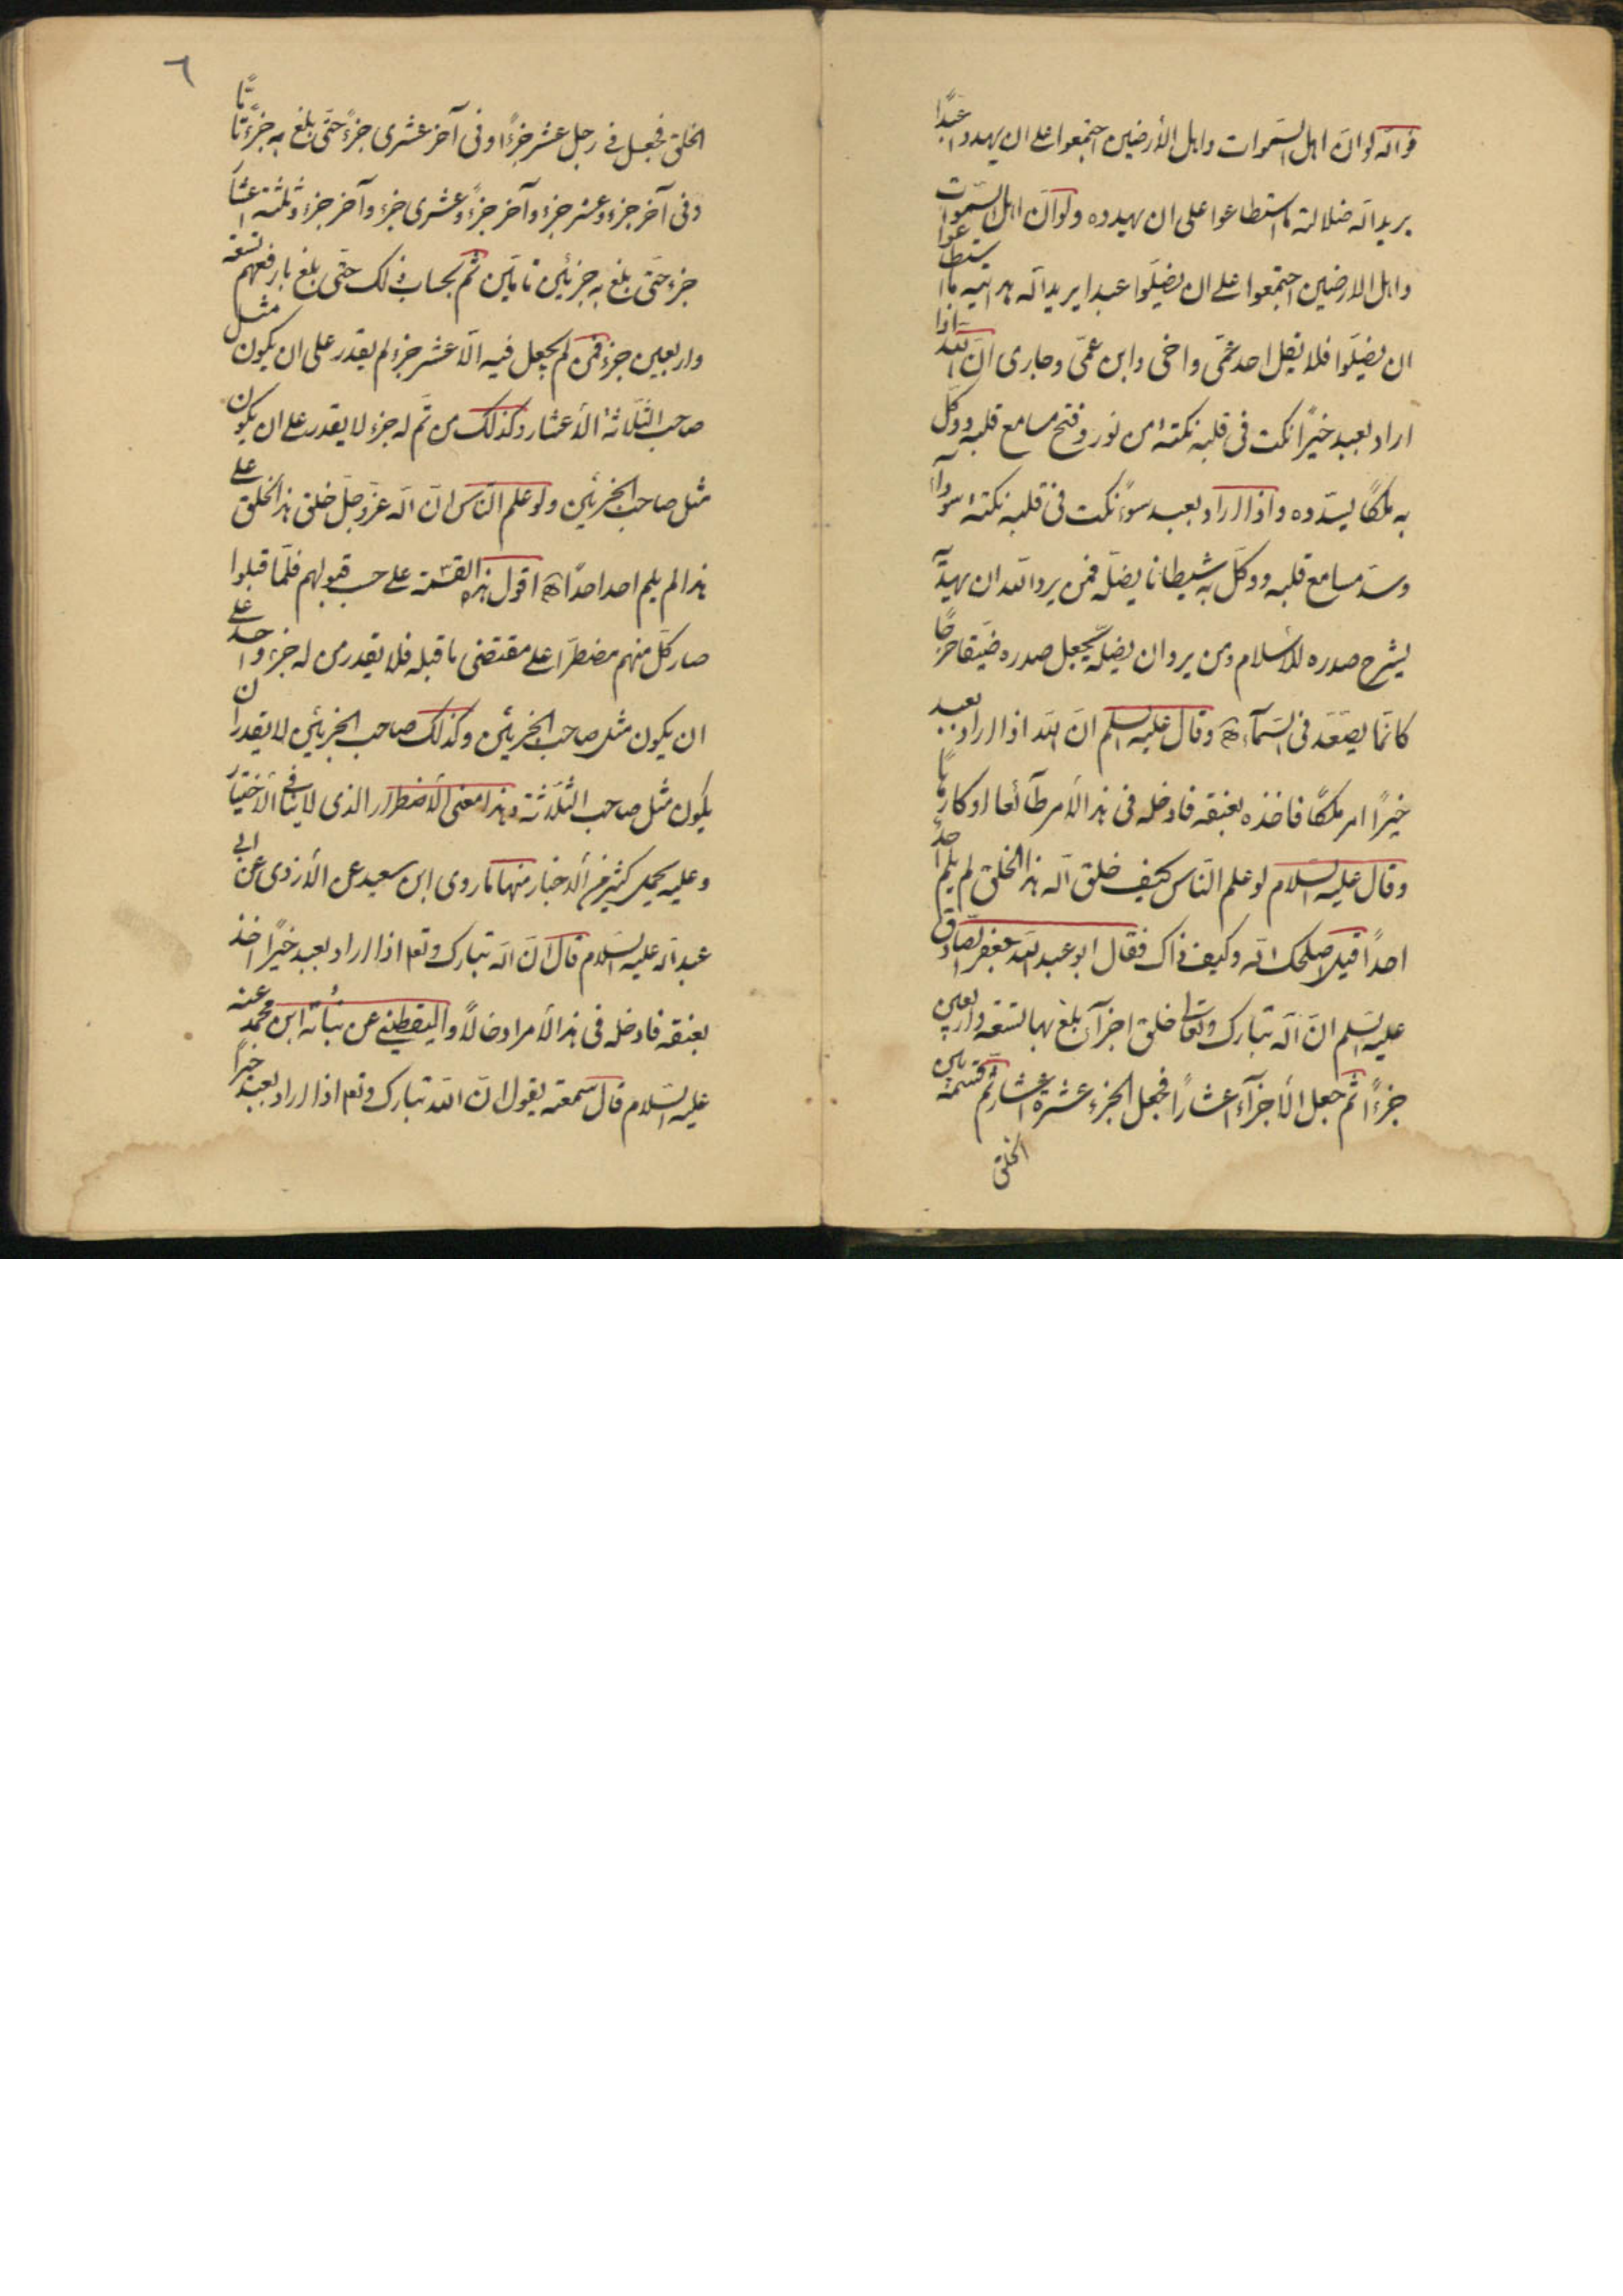 فوالله لو انّ اهل السّموات واهل الأرضين اجتمعوا على ان يهدوا عبدًا
يريد الله ضلالته ما استطاعوا على ان يهدوه ولو انّ اهل السّموات
واهل الارضين اجتمعوا على ان يضلّوا عبدا يريد الله هدايته ما استطاعوا
ان يضلّوا فلا يقل احد عمّي واخي وابن عمّي وجاري انّ الله اذا
اراد بعبد خيرًا نكت في قلبه نكتة من نور وفتح مسامع قلبه ووكّل
به ملكًا يسدّده واذا اراد بعبد سوءً نكت في قلبه نكتة سودآء
وسدّ مسامع قلبه ووكّل به شيطانا يضلّه فمن يرد الله ان يهديه
يشرح صدره للأسلام ومن يرد ان يضلّه يجعل صدره ضيّقا حرجًا
كانّما يصّعّد في السّمآء وقال عليه السلم انّ الله اذا اراد بعبد
خيرًا امر ملكًا فاخذه بعنقه فادخله في هذا الأمر طآئعا او كارهًا
وقال عليه السّلام لو علم النّاس كيف خلق الله هذا الخلق لم يلم احد
احدًا فقيل اصلحك الله وكيف ذاك فقال ابو عبد الله جعفر الصّادق
عليه السلم انّ الله تبارك وتعالى خلق اجزآء بلغ بها تسعة واربعين
جزءًا ثمّ جعل الأجزآء اعشارًا فجعل الجزء عشرة اعشار ثمّ قسمه بين
الخلق
٦
الخلق فجعل في رجل عشر جزءًا وفي آخر عشري جزءً حتّى بلغ به جزءً تامًّا
وفي آخر جزء وعشر جزء وآخر جزءً وعشري جزء وآخر جزء وثلثة اعشار
جزء حتّى بلغ به جزئين تامّين ثمّ بحساب ذلك حتّى بلغ بارفعهم تسعة
واربعين جزء فمن لم يجعل فيه الّا عشر جزء لم يقدر على ان يكون مثل
صاحب الثّلاثة الأعشار وكذلك من تمّ له جزء لا يقدر على ان يكون
مثل صاحب الجزئين ولو علم النّاس انّ الله عزّ وجلّ خلق هذا الخلق على
هذا لم يلم احد احدًا اقول هذه القسمة على حسب قبولهم فلمّا قبلوا
صار كلّ منهم مضطرّا على مقتضى ما قبله فلا يقدر من له جزء واحد على
ان يكون مثل صاحب الجزئين وكذلك صاحب الجزئين لا يقدر ان
يكون مثل صاحب الثّلاثة وهذا معنى الأضطرار الذي لا ينافي الأختيار
وعليه يحمل كثير من الأخبار منها ما روى ابن سعيد عن الأزدي عن ابي
عبد الله عليه السّلام قال انّ الله تبارك وتعالى اذا اراد بعبد خيرًا اخذ
بعنقه فادخله في هذا الأمر ادخالًا واليقطيني عن نباتة ابن محمّد عنه
عليه السّلام قال سمعته يقول انّ الله تبارك وتعالى اذا اراد بعبد خيرًا